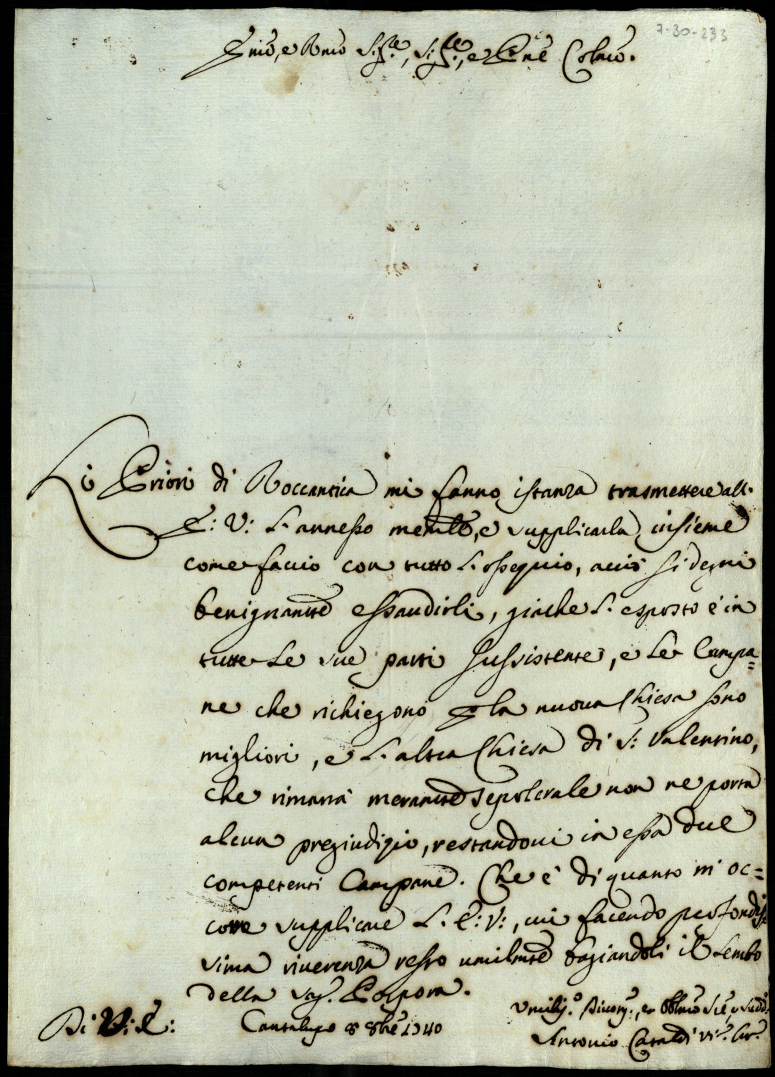 7-30-233
Emo, e Rmo Sig.re, Sig.re, e Pne Colmo.
Li Priori di Roccantica mi fanno istanza trasmettere all'
E: V: l'annesso memle, e supplicarla insieme
come faccio con tutto l'ossequio, acciò si degni
benignamte essaudirli, giache l'esposto è in
tutte le sue parti sussistente, e le Campa=
ne che richiegono p la nuova Chiesa sono
migliori, e l'altra Chiesa di S: Valentino,
che rimarrà meramte sepolcrale non ne porta
alcun pregiudizio, restandovi in essa due
competenti Campane. Che è di quanto m'oc=
corre supplicare l'E: V:, mi facendo profondis
sima riverenza resto umilmte bagiandoli il lembo
della Sag. Porpora.
Di V: E:
Cantalupo 8 8bre 1740
Umilis.o Divotis.o, et Obblmo Sre, e Sudd.
Antonio Cataldi Vic.